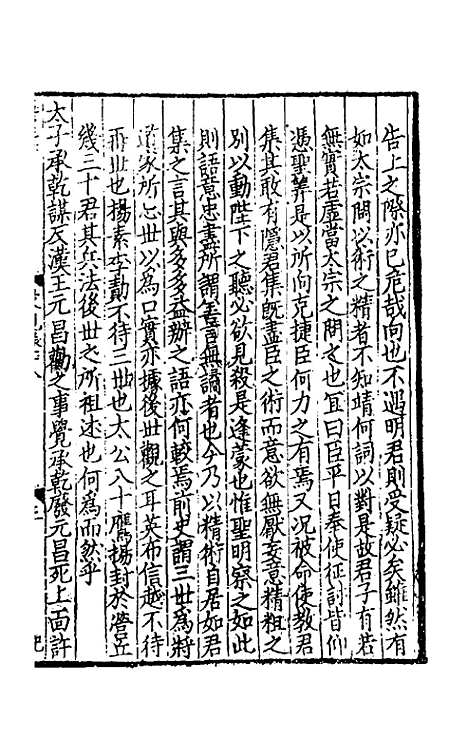 告上之際亦已危哉向也不遇明君則受疑必矣雖然有
如太宗問以術之精者不知靖何詞以對是故君子有若
無實若虛當太宗之問之也宜曰臣平日奉使征討皆仰
憑聖筭是以所向克捷臣何力之有焉又况被命使教君
集其敢有隱君集旣盡臣之術而意欲無厭妄意精粗之
別以動陛下之聽必欲見殺是逢蒙也惟聖明察之如此
則語意忠盡所謂善言無謫者也今乃以精術自居如君
集之言其與多多益辦之語亦何較焉前史謂三世爲將
道家所忌世以爲口實亦據後世觀之耳英布信越不待
再世也楊素李勣不待三世也太公八十鷹揚封於營丘
幾三十君其兵法後世之所祖述也何爲而然乎
太子承乾謀反漢王元昌勸之事覺承乾廢元昌死上面許